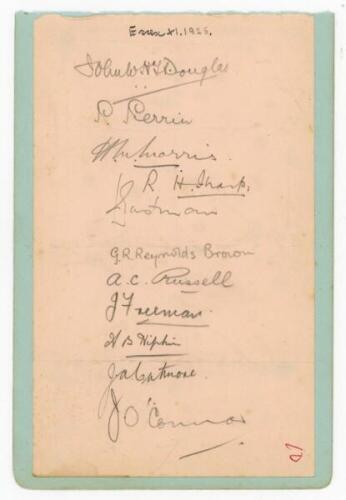 Essex XI. 1925.
John W.H.T. Douglas
P. Perrin
H M Morris.
R. H. Sharp.
L Eastman
G.R. Reynolds Brown
A.C. Russell
J Freeman.
H B Hipkin
J A Cutmore.
J O'Connor